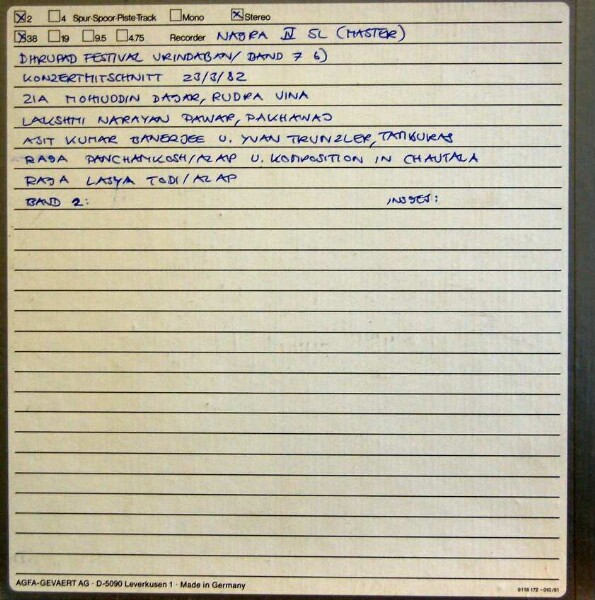 2 4 Spur-Spoor-Piste-Track Mono Stereo
38 19 9.5 4.75 Recorder NAGRA IV SL (MASTER)
DHRUPAD FESTIVAL VRINDABAN/ BAND 7 6)
KONZERTMITSCHNITT 23/3/82
ZIA MOHIUDDIN DAGAR, RUDRA VINA
LAKSHMI NARAYAN PAWAR, PAKHAWAJ
ASIT KUMAR BANERJEE U. YVAN TRUNZLER, TAMBURAS
RAGA PANCHAMKOSH/ALAP U. KOMPOSITION IN CHAUTALA
RAGA LASYA TODI/ALAP
BAND 2:
AGFA-GEVAERT AG · D-5090 Leverkusen 1 · Made in Germany